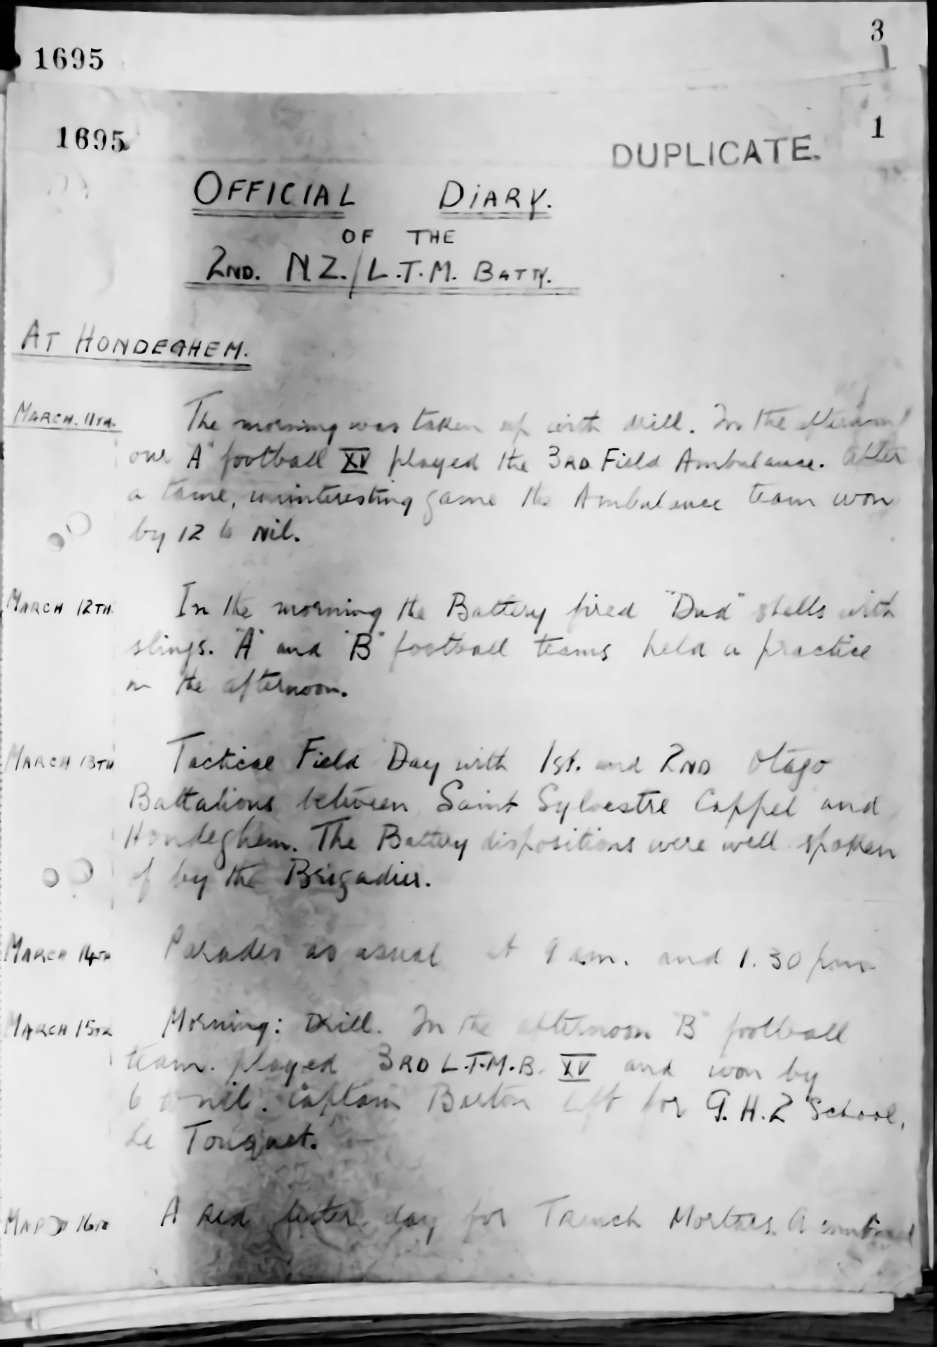 1695
3
1695
1
DUPLICATE.
OFFICIAL DIARY.
OF THE
2ND. NZ./L.T.M. BATTY.
AT HONDEGHEM.
MARCH. 11TH. The morning was taken up with drill. In the afternoon
our "A" football XV played the 3RD Field Ambulance. After
a tame, uninteresting game the Ambulance team won
by 12 to Nil.
MARCH 12TH. In the morning the Battery fired "Dud" shells with
slings. "A" and "B" football teams held a practice
in the afternoon.
MARCH 13TH Tactical Field Day with 1st. and 2ND Otago
Battalions between Saint Sylvestre Cappel and
Hondeghem. The Battery dispositions were well spoken
of by the Brigadier.
MARCH 14TH Parades as usual at 9 am. and 1.30 pm
MARCH 15TH Morning: Drill. In the afternoon "B" football
team. played 3RD L.T.M.B. XV and won by
6 to nil. Captain Barton left for G.H.Q School,
Le Touquet.
MARCH 16TH A red letter day for Trench Mortars. A combined